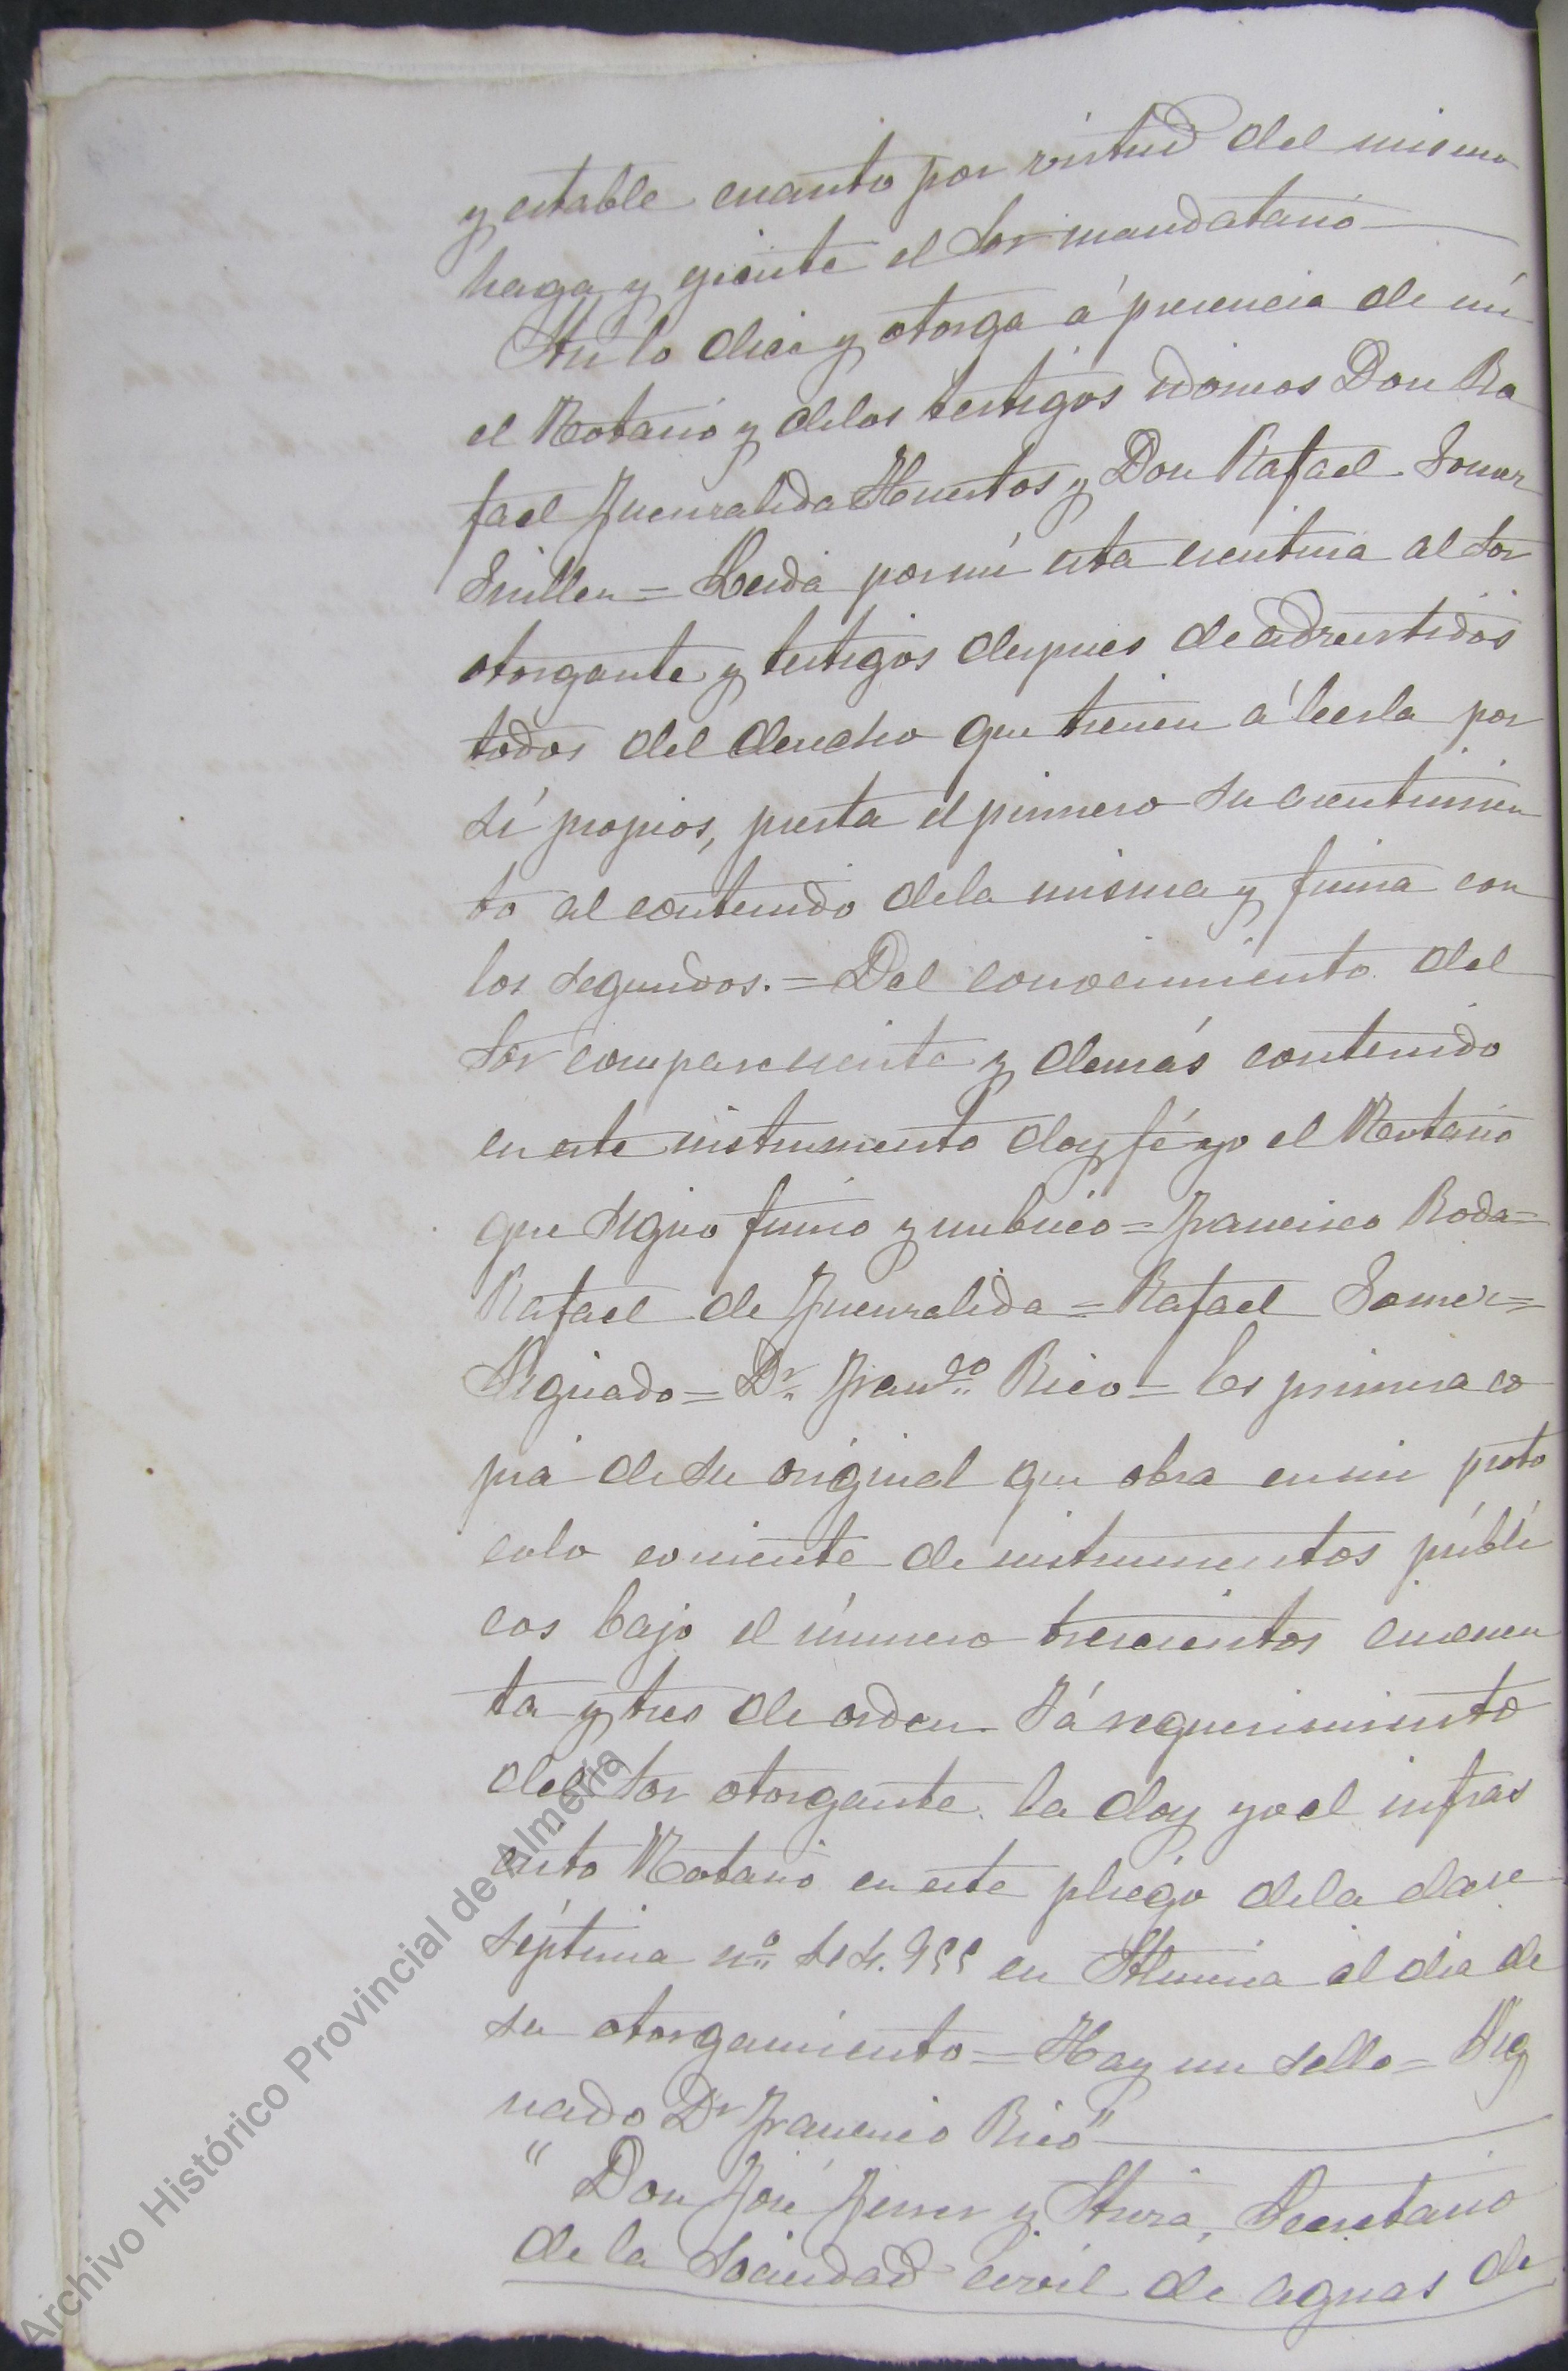 y estable cuanto por virtud del mismo
haga y ejecute el Sor mandatario
Asi lo dice y otorga á presencia de mi
el Notario y delos testigos idoneos Don Ra
fael Fuenzalida Huertos y Don Rafael Somer
Leida por mi esta escritura al Sor
otorgante y testigos despues de advertidos
todos del derecho que tienen á leerla por
sí propios, presta el primero su asentimien
to al contenido dela misma y firma con
los segundos. = Del conocimiento del
Sor compareciente y demás contenido
en este instrumento doy fé yo el Notario
que signo firmo y rubrico = Francisco Roda =
Rafael de Fuenzalida = Rafael Somer =
Signado = Dr. Franco Rico = Es primera co
pia de su original que obra en mi proto
colo corriente de instrumentos públi
cos bajo el número trescientos cincuen
ta y tres de orden. Y á requerimiento
del Sor otorgante la doy yo el infras
crito Notario en este pliego dela clase
séptima no en Almeria el dia de
su otorgamiento = Hay un sello = Sig
nado Dr Francisco Rico"
" Don José Ferrer y Secretario
de la Sociedad civil de aguas de
Archivo Histórico Provincial de Almería